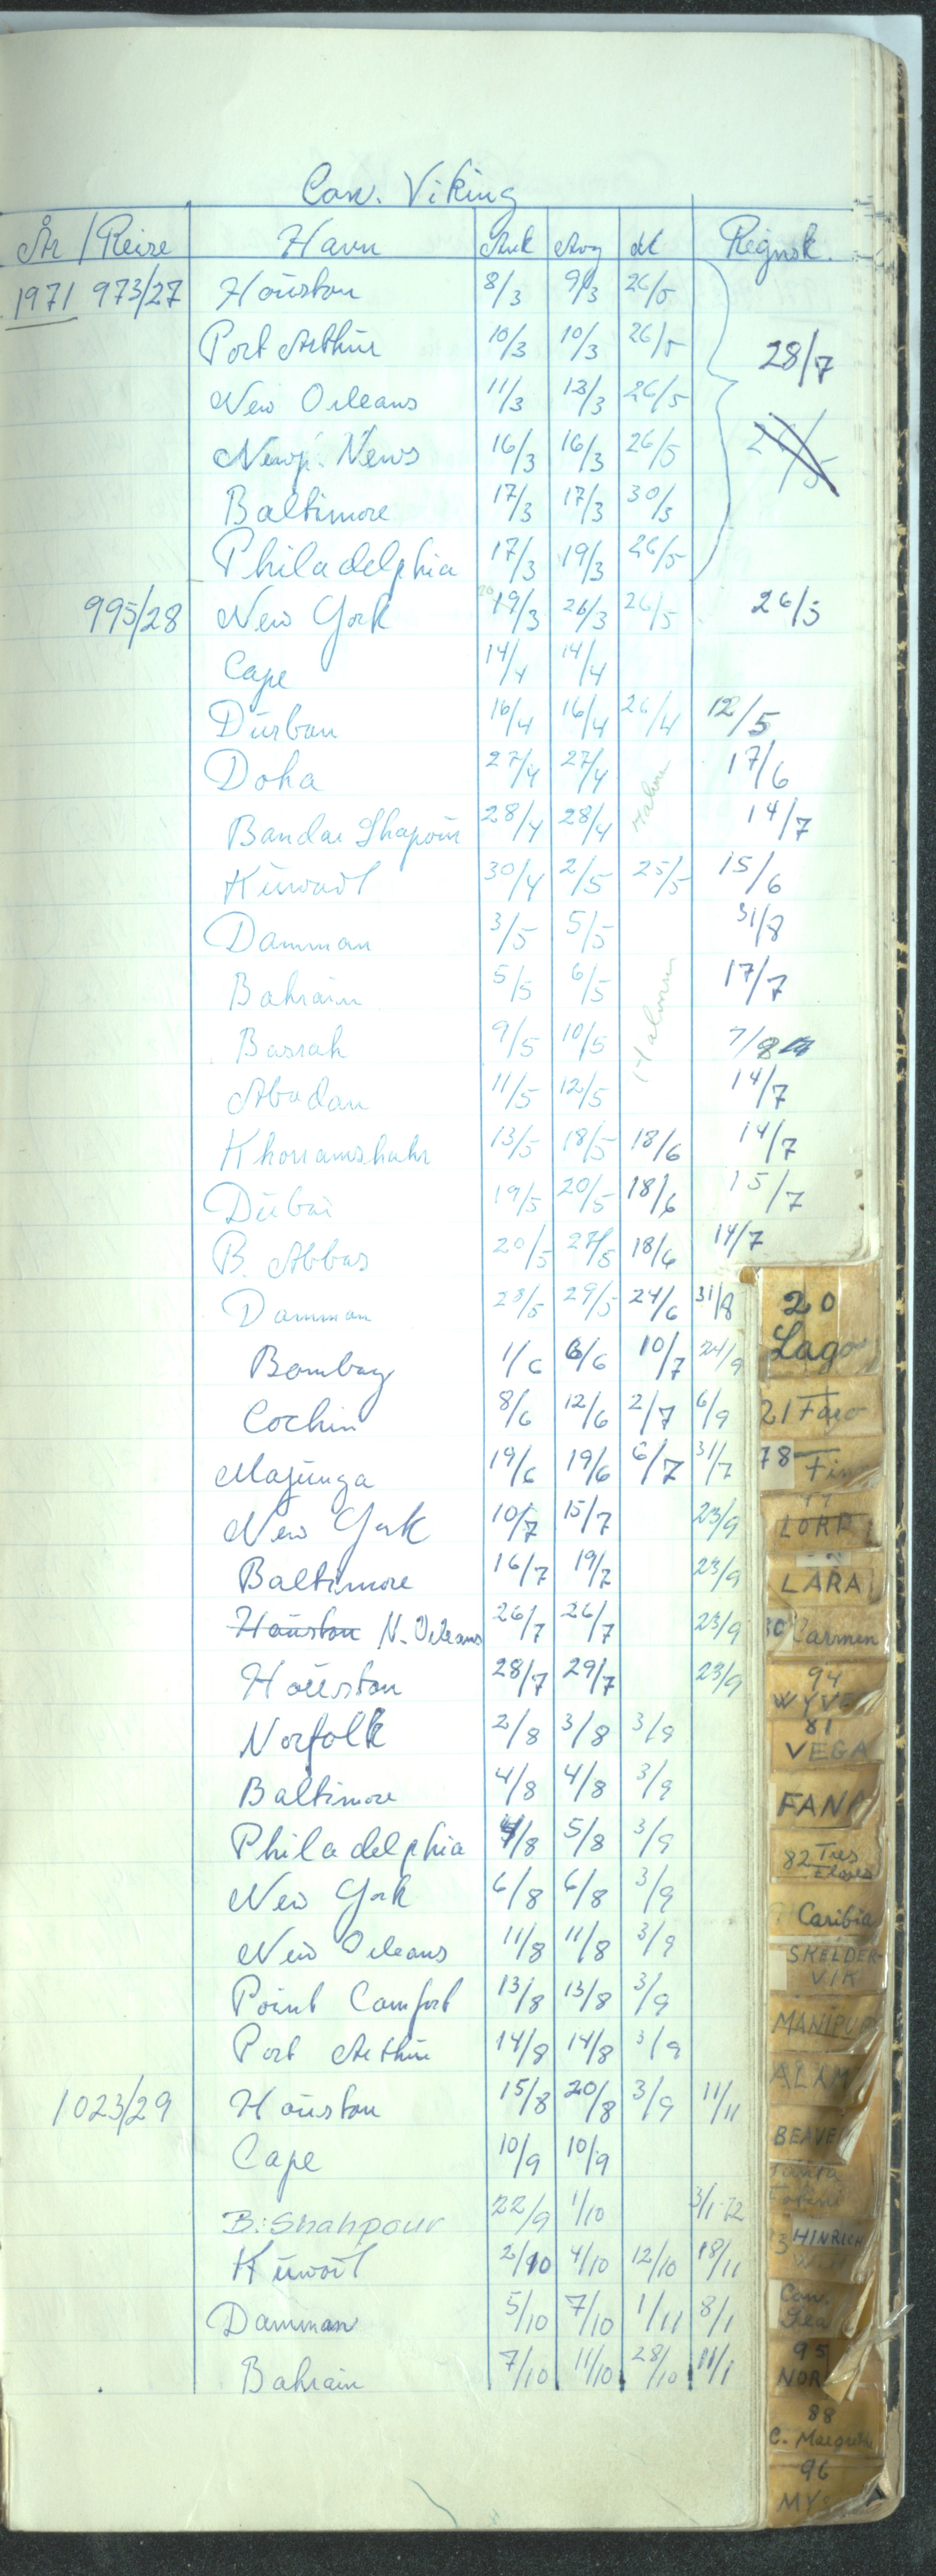 Con. Viking
År / Reise Havn Ank Avg dt Regnsk.
1971 973/27 Houston 8/3 9/3 26/5
Port Arthur 10/3 10/3 26/5
28/7
New Orleans 11/3 13/3 26/5
Newp. News 16/3 16/3 26/5
Baltimore 17/3 17/3 30/3
Philadelphia 17/3 19/3 26/5
995/28 New York 19/3 26/3 26/5 26/5
Cape 14/4 14/4
Durban 16/4 16/4 26/4 12/5
Doha 27/4 27/4 17/6
Bandar Shapour 28/4 28/4 14/7
Kuwait 30/4 2/5 25/5 15/6
Damman 3/5 5/5 31/8
Bahrain 5/5 6/5 17/7
Basrah 9/5 10/5 7/8
Abadan 11/5 12/5 14/7
Khorramshahr 13/5 18/5 18/6 14/7
Dubai 19/5 20/5 18/6 15/7
B. Abbas 20/5 27/5 18/6 14/7
Damman 28/5 29/5 24/6 31/8
Bombay 1/6 6/6 10/7 24/9
Cochin 8/6 12/6 2/7 6/9
Majunga 19/6 19/6 6/7 31/7
New York 10/7 15/7 23/9
Baltimore 16/7 19/7 23/9
Houston N. Orleans 26/7 26/7 23/9
Houston 28/7 29/7 23/9
Norfolk 2/8 3/8 3/9
Baltimore 4/8 4/8 3/9
Philadelphia 4/8 5/8 3/9
New York 6/8 6/8 3/9
New Orleans 11/8 11/8 3/9
Point Comfort 13/8 13/8 3/9
Port Arthur 14/8 14/8 3/9
1023/29 Houston 15/8 20/8 3/9 11/11
Cape 10/9 10/9
B. Shahpour 22/9 1/10 3/1-72
Kuwait 2/10 4/10 12/10 18/11
Damman 5/10 7/10 1/11 8/1
Bahrain 7/10 11/10 28/10 11/1
20
Lago
21 Faro
78
LARA
Carmen
94
WYVE
81
VEGA
FANA
82 Tres
Caribia
SKELDER-
VIK
MANIPUR
ALAM
BEAVE
HINRICH
Con.
95
NOR
88
C. Margrethe
96
MYS